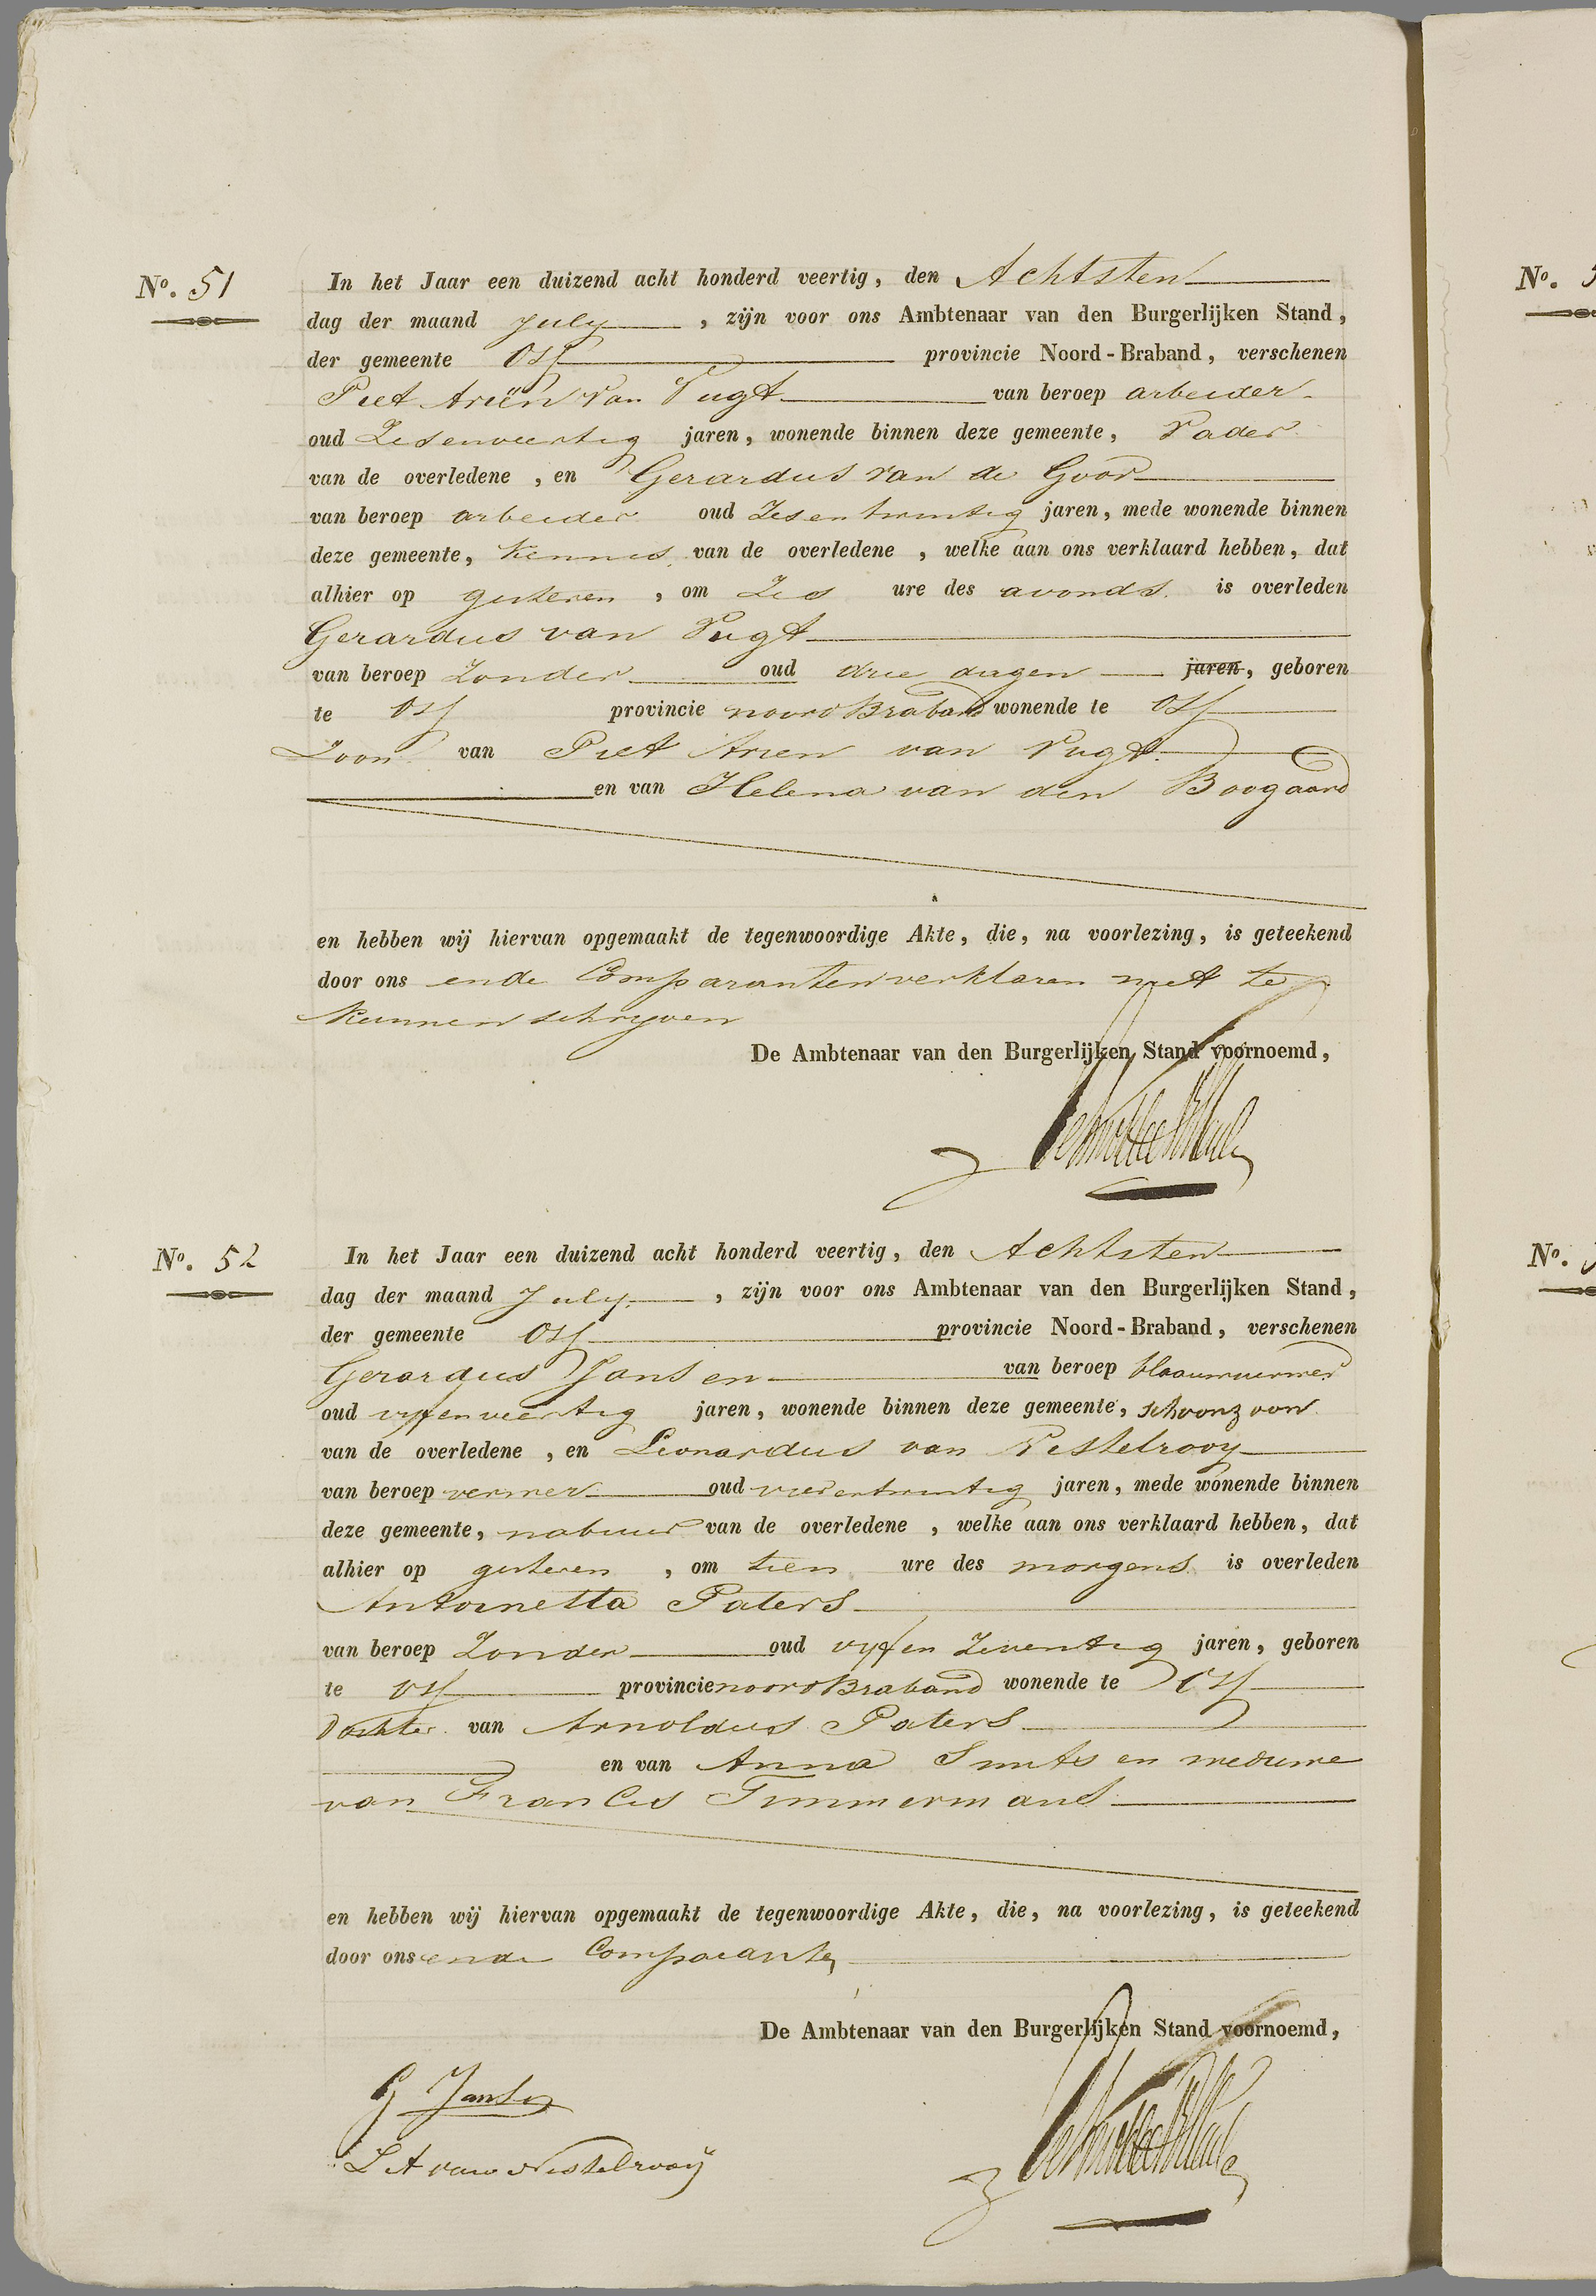 No. 51
In het Jaar een duizend acht honderd veertig, den Achtsten
dag der maand July, zijn voor ons Ambtenaar van den Burgerlijken Stand,
der gemeente Oss provincie Noord-Braband, verschenen
Piet Ariën van Vugt van beroep arbeider
oud Zesenveertig jaren, wonende binnen deze gemeente, Vader
van de overledene, en Gerardus van de Goor
van beroep arbeider oud Zesentwintig jaren, mede wonende binnen
deze gemeente, Kennis van de overledene, welke aan ons verklaard hebben, dat
alhier op gisteren, om Zes ure des avonds is overleden
Gerardus van Vugt
van beroep Zonder oud drie dagen jaren, geboren
te Oss provincie noord Braband wonende te Oss
Zoon van Piet Arien van Vugt
en van Helena van den Boogaard
en hebben wij hiervan opgemaakt de tegenwoordige Akte, die, na voorlezing, is geteekend
door ons en de Comparanten verklaren niet te
kunnen schryven
De Ambtenaar van den Burgerlijken Stand voornoemd,
No. 52
In het Jaar een duizend acht honderd veertig, den Achtsten
dag der maand July, zijn voor ons Ambtenaar van den Burgerlijken Stand,
der gemeente Oss provincie Noord-Braband, verschenen
Gerardus Jansen van beroep blaauwverwer
oud vyfenveertig jaren, wonende binnen deze gemeente, schoonzoon
van de overledene, en Leonardus van Nistelrooy
van beroep verwer oud vierentwintig jaren, mede wonende binnen
deze gemeente, nabuur van de overledene, welke aan ons verklaard hebben, dat
alhier op gisteren, om tien ure des morgens is overleden
Antoinetta Paters
van beroep Zonder oud vyf en Zeventig jaren, geboren
te Oss provincie noord Braband wonende te Oss
dochter van Arnoldus Paters
en van Anna Smits en weduwe
van Francis Timmermans
en hebben wij hiervan opgemaakt de tegenwoordige Akte, die, na voorlezing, is geteekend
door ons en de Comparanten
De Ambtenaar van den Burgerlijken Stand voornoemd,
G Jansen
L A van Nistelrooÿ
No.
No.